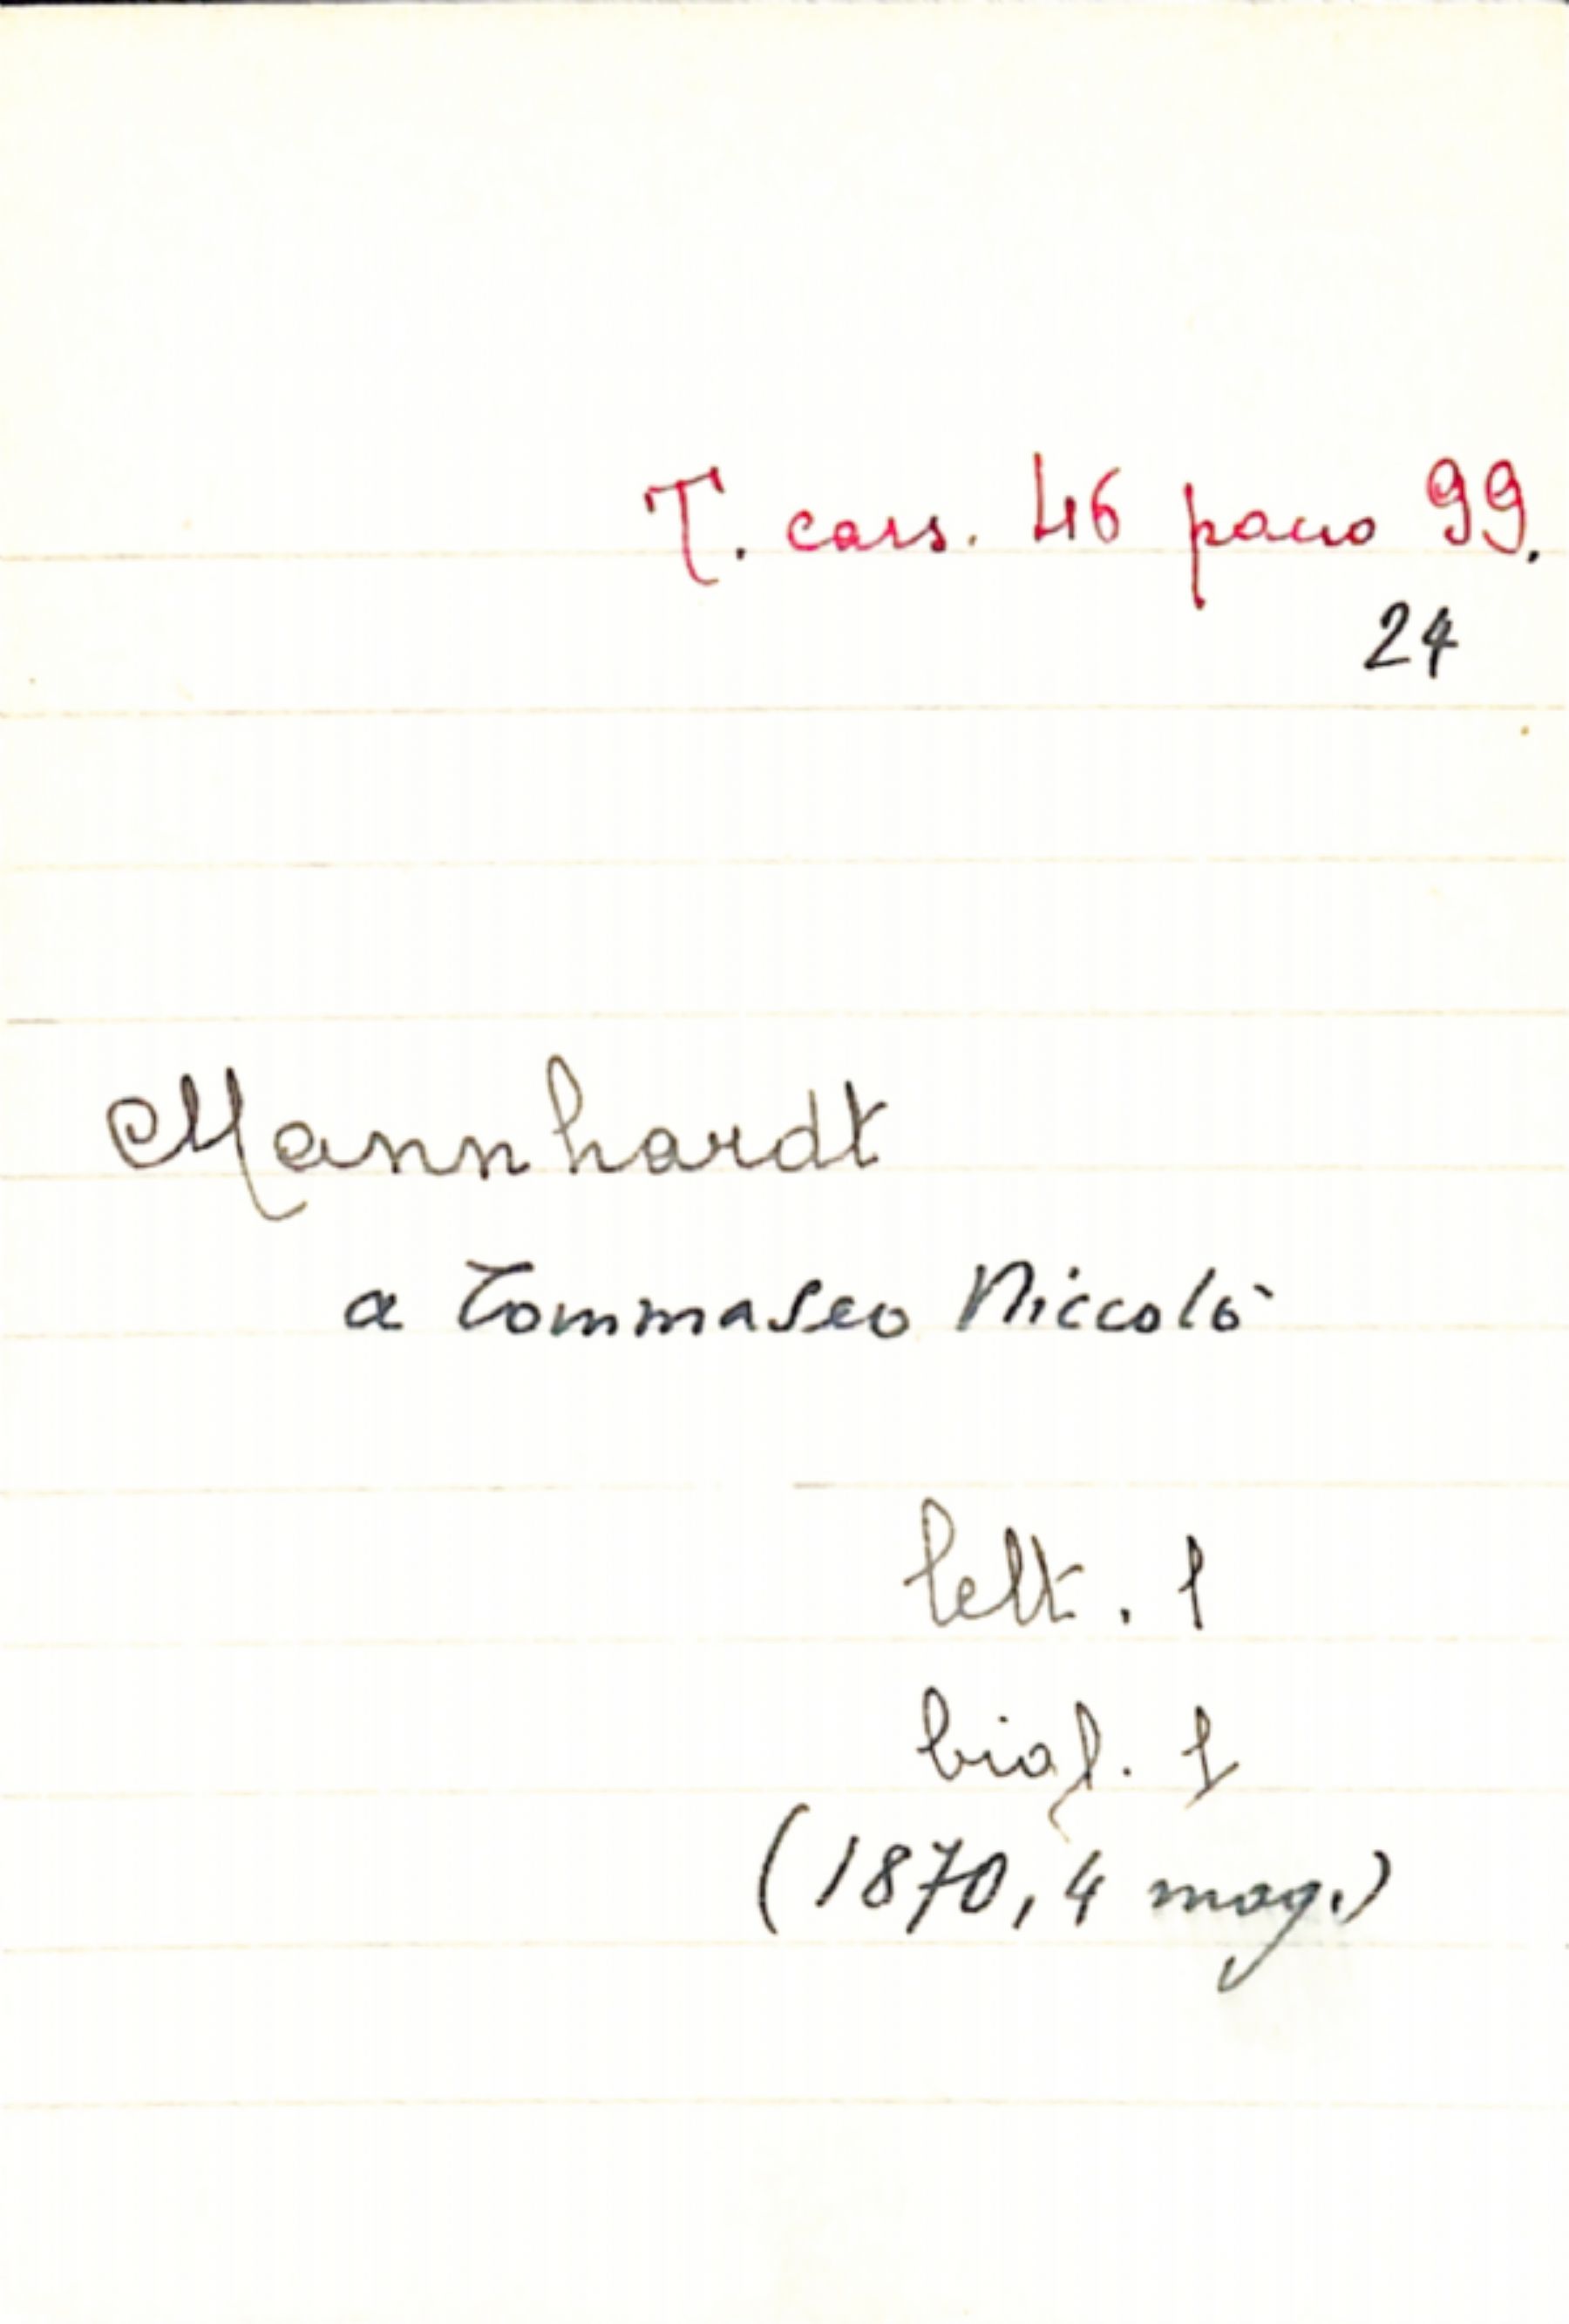 T. cass. 46 pacco 99.
24
Mannhardt
a Tommaseo Niccolò
lett. 1
biogl. 1
(1870, 4 mag.)